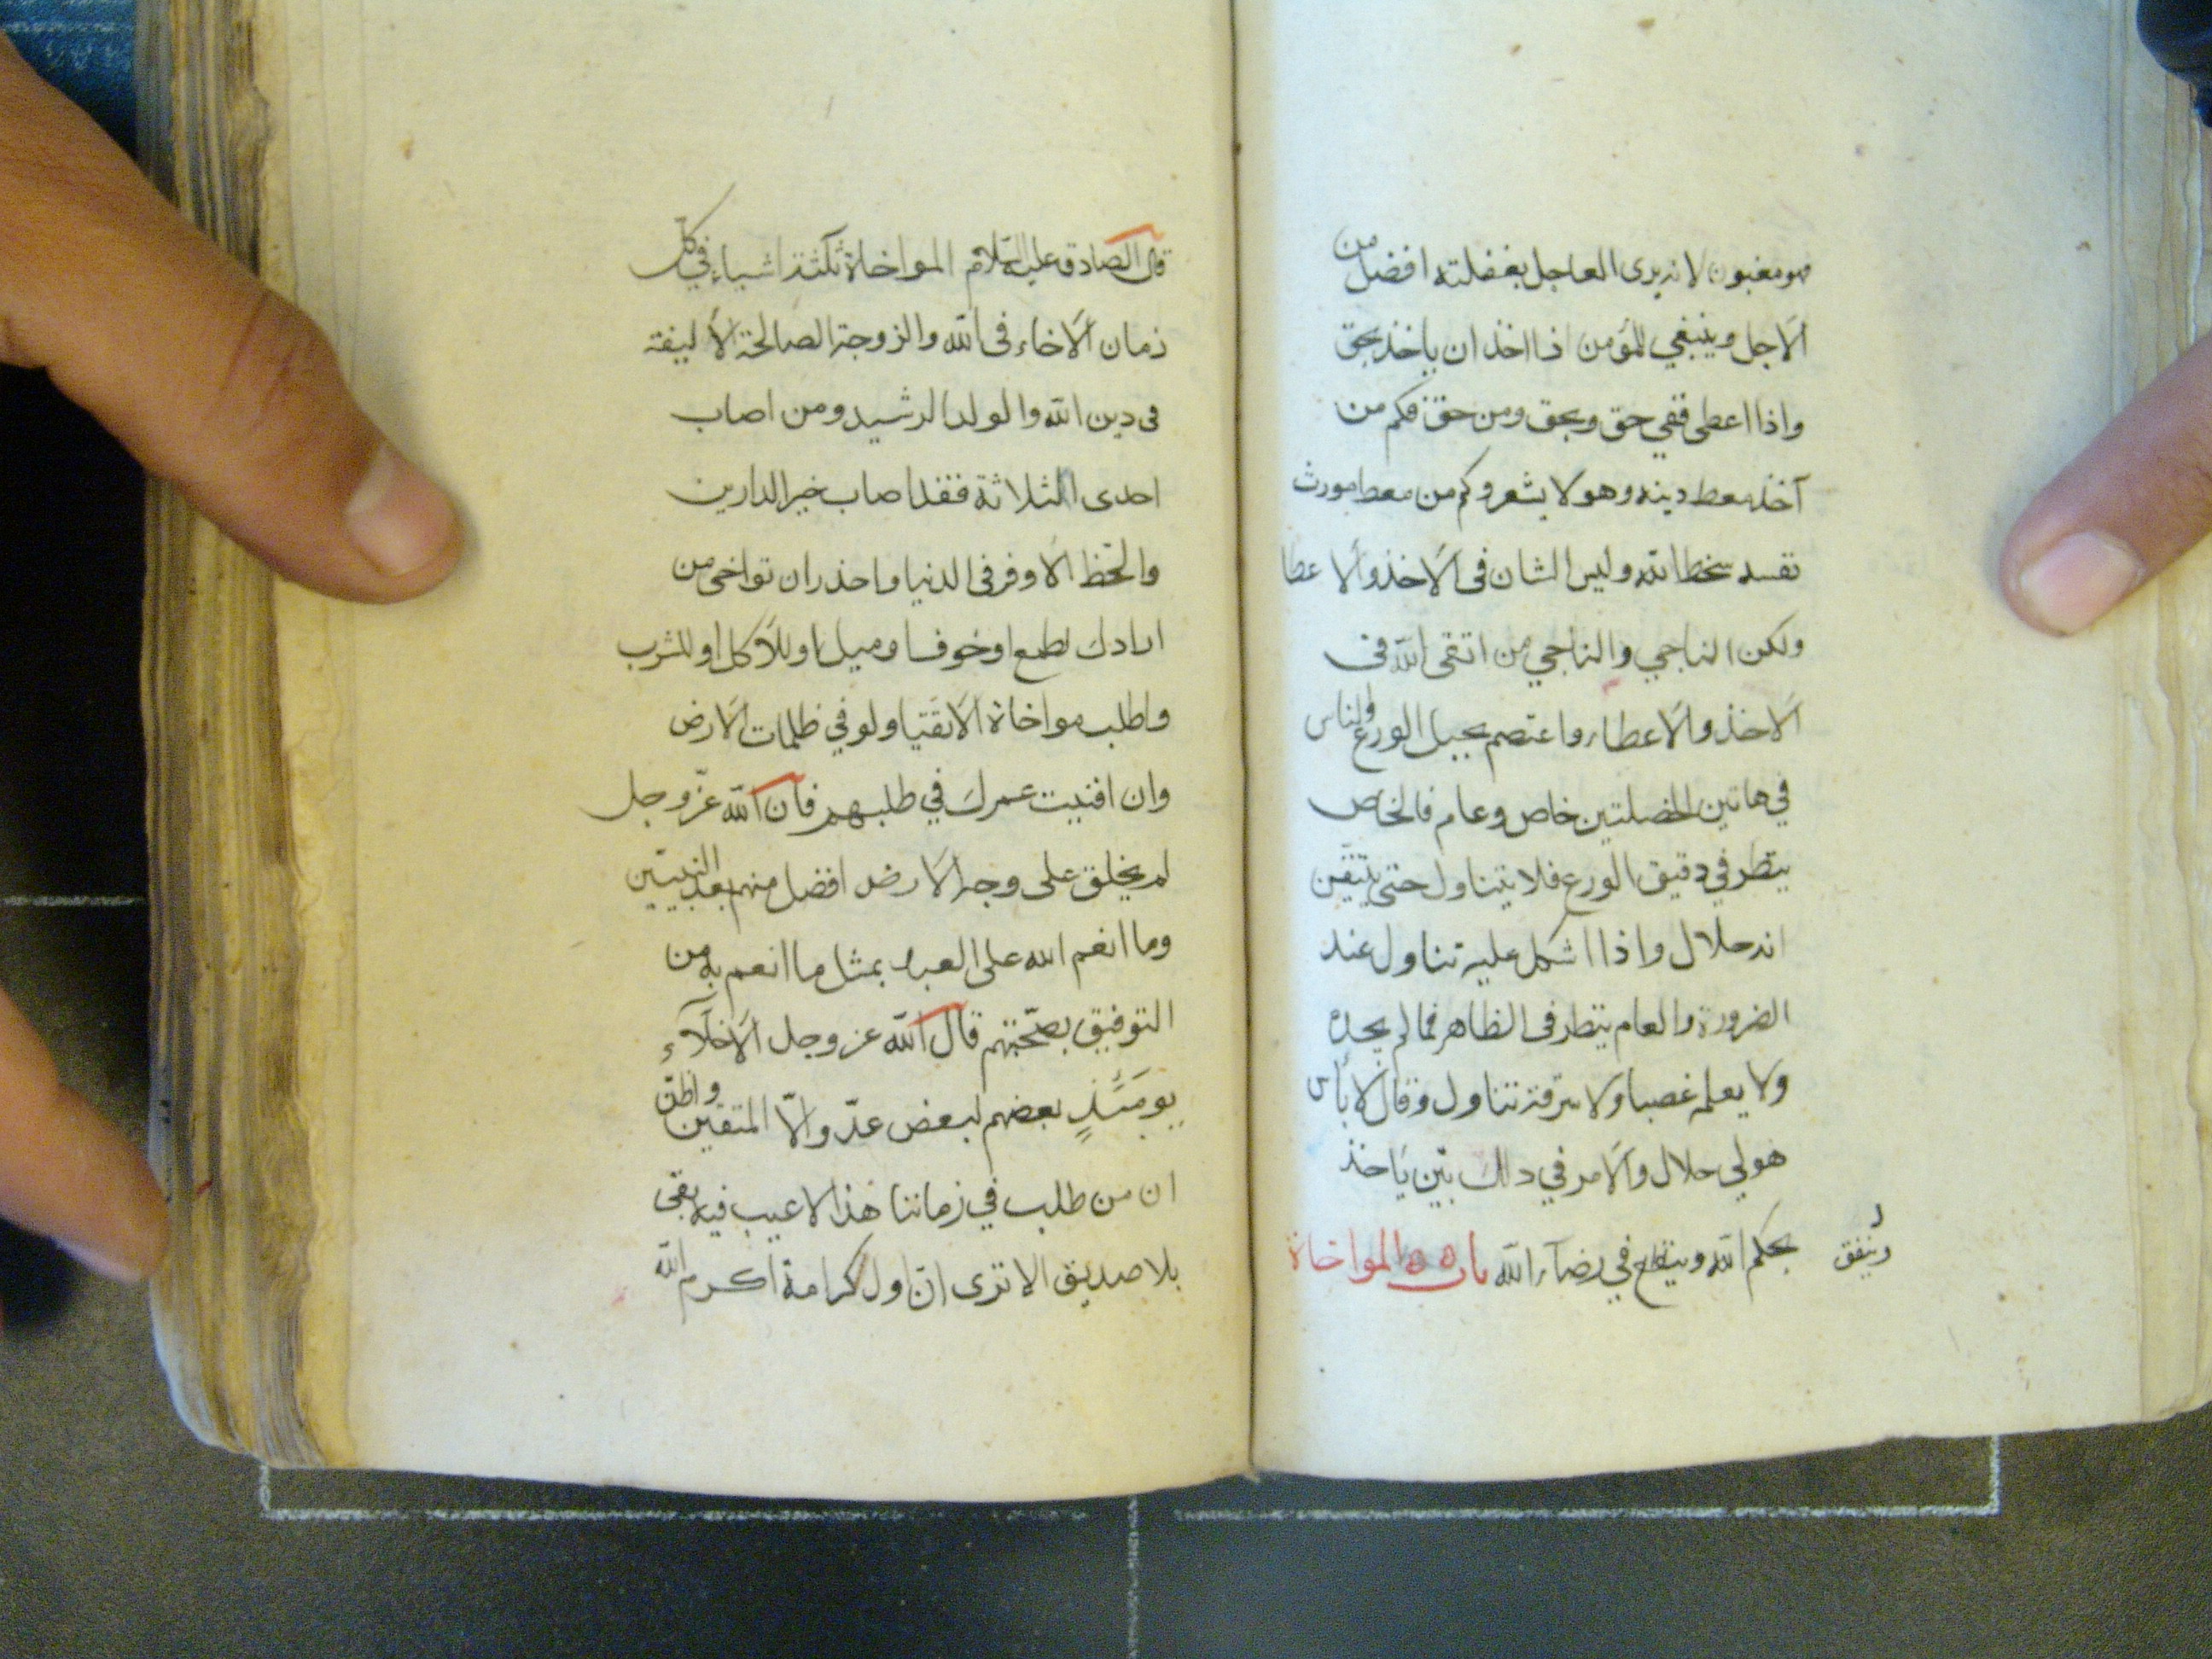 فهو مغبون لانه يرى العاجل بغفلته افضل من
الآجل وينبغي للمؤمن اذا اخذ ان ياخذ بحق
واذا اعطى ففي حق وبحق ومن حق فكم من
آخذ معط دينه وهو لا يشعر وكم من معط مورث
نفسه سخط الله وليس الشان في الاخذ والاعطا
ولكن الناجي والناجي من اتقى الله في
الاخذ والاعطاء واعتصم بحبل الورع والناس
في هاتين الخصلتين خاص وعام فالخاص
ينظر في دقيق الورع فلا يتناول حتى يتيقن
انه حلال واذا اشكل عليه تناول عند
الضرورة والعام ينظر في الظاهر فما لم يجده
ولا يعلمه غصبا ولا سرقة تناول وقال لا بأس
هو لي حلال والامر في ذلك بين ياخذ
بحكم الله وينفق في رضاء الله باب ٥٥ المواخاة
وينفق
قال الصادق عليه السلام المواخاة ثلثة اشياء في كل
زمان الاخاء في الله والزوجة الصالحة الاليفة
في دين الله والولد الرشيد ومن اصاب
احدى الثلاثة فقد اصاب خير الدارين
والحظ الاوفر في الدنيا واحذر ان تواخي من
ارادك لطمع او خوف او ميل او للأكل او للشرب
واطلب مواخاة الاتقيا ولو في ظلمات الارض
وان افنيت عمرك في طلبهم فان الله عز وجل
لم يخلق على وجه الارض افضل منهم بعد النبيين
وما انعم الله على العبد بمثل ما انعم به من
التوفيق بصحبتهم قال الله عز وجل الاخلآء
يومئذٍ بعضهم لبعض عدو الّا المتقين واظن
ان من طلب في زماننا هذا لا عيب فيه بقى
بلا صديق الا ترى ان اول كرامة اكرم الله